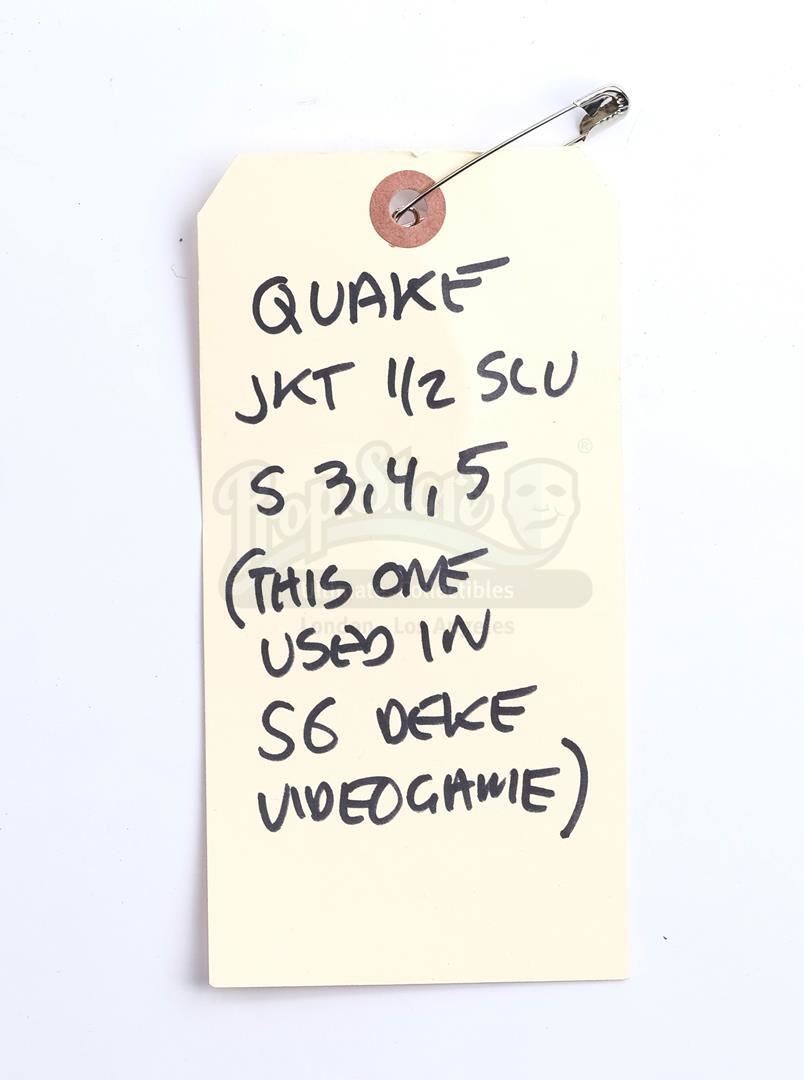 QUAKE
JKT 1/2 SLV
S 3,4,5
(THIS ONE
USED IN
S6 DEKE
VIDEOGAME)
PropStore
®
Ultimate Collectibles
London · Los Angeles